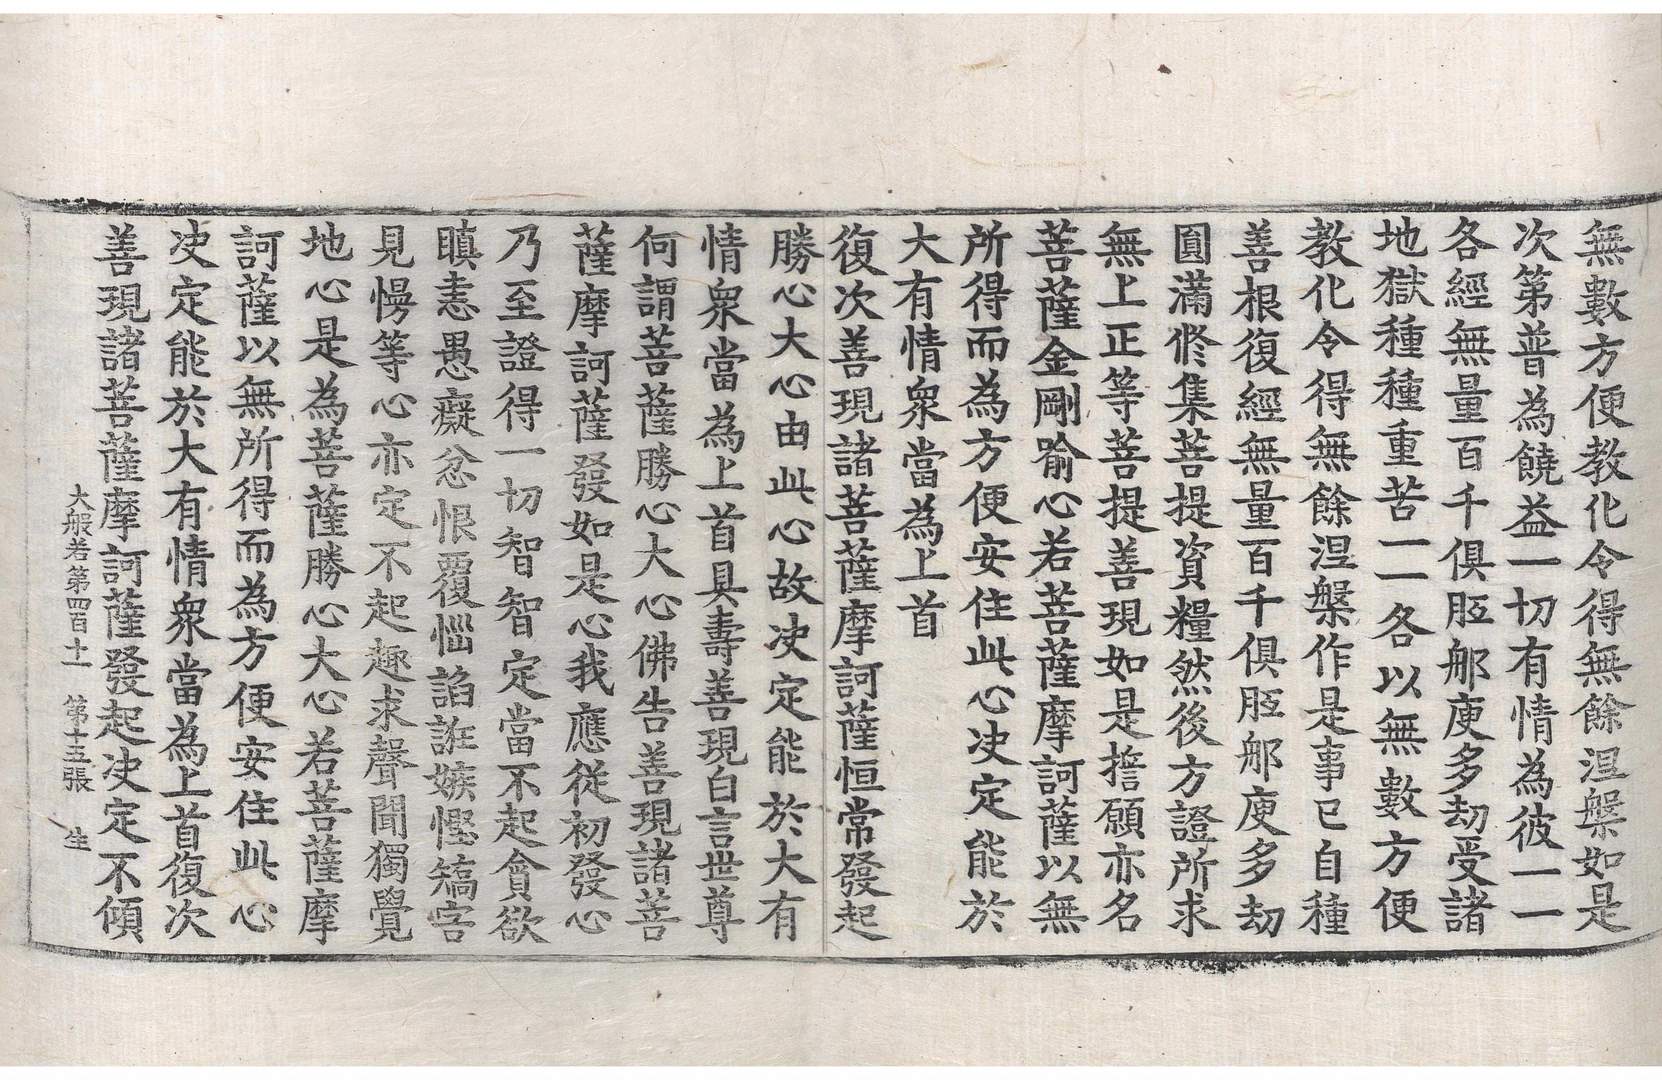 無數方便教化令得無餘涅槃如是
次第普為饒益一切有情為彼一一
各經無量百千俱胝那庾多劫受諸
地獄種種重苦一一各以無數方便
教化令得無餘涅槃作是事已自種
善根復經無量百千俱胝那庾多劫
圓滿修集菩提資糧然後方證所求
無上正等菩提善現如是擔願亦名
菩薩金剛喻心若菩薩摩訶薩以無
所得而為方便安住此心决定能於
大有情衆當為上首
復次善現諸菩薩摩訶薩恒常發起
勝心大心由此心故决定能於大有
情衆當為上首具壽善現白言世尊
何謂菩薩勝心大心佛告善現諸菩
薩摩訶薩發如是心我應從初發心
乃至證得一切智智定當不起貪欲
瞋恚愚癡忿恨覆惱諂誑嫉慳矯害
見慢等心亦定不起趣求聲聞獨覺
地心是為菩薩勝心大心若菩薩摩
訶薩以無所得而為方便安住此心
决定能於大有情衆當為上首復次
善現諸菩薩摩訶薩發起决定不傾
大般若第四百十一 第十五張 生